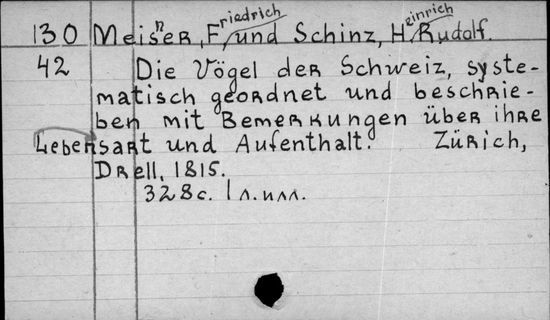 130 Meisner, Friedrich und Schinz, Heinrich Rudolf.
42 Die Vögel der Schweiz, syste-
matisch geordnet und beschrie-
ben mit Bemerkungen über ihre
Lebensart und Aufenthalt. Zürich,
Drell, 1815.
328c.